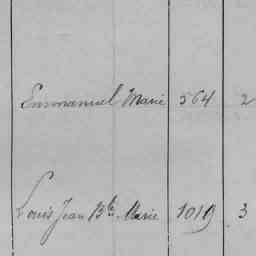 Emmanuel Marie 564 2
Louis Jean Bte Marie 1019 3